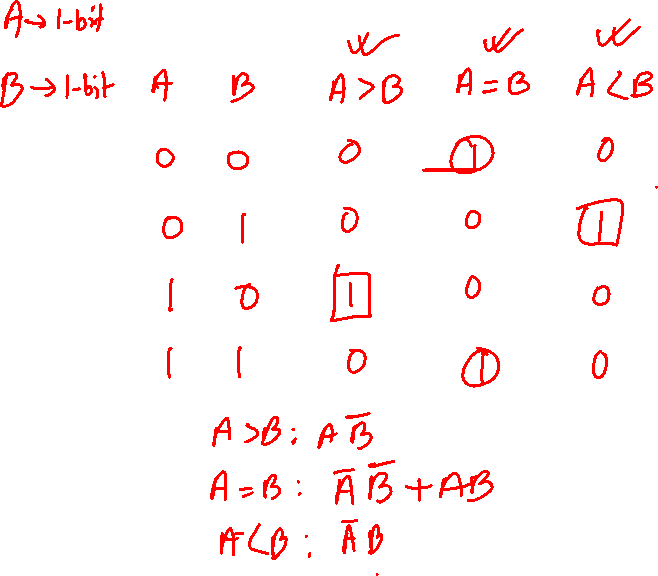 A → 1-bit
B → 1-bit A B A > B A = B A < B
0 0 0 1 0
0 1 0 0 1
1 0 1 0 0
1 1 0 1 0
A > B : A B̅
A = B : A̅ B̅ + AB
A < B : A̅ B